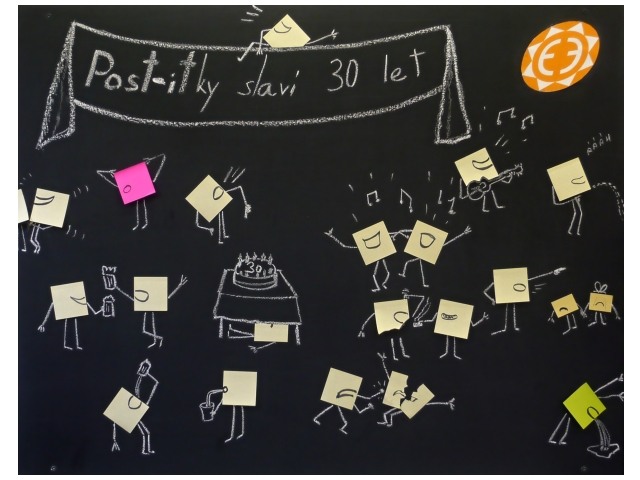 Post-itky slaví 30 let
AAAH
30